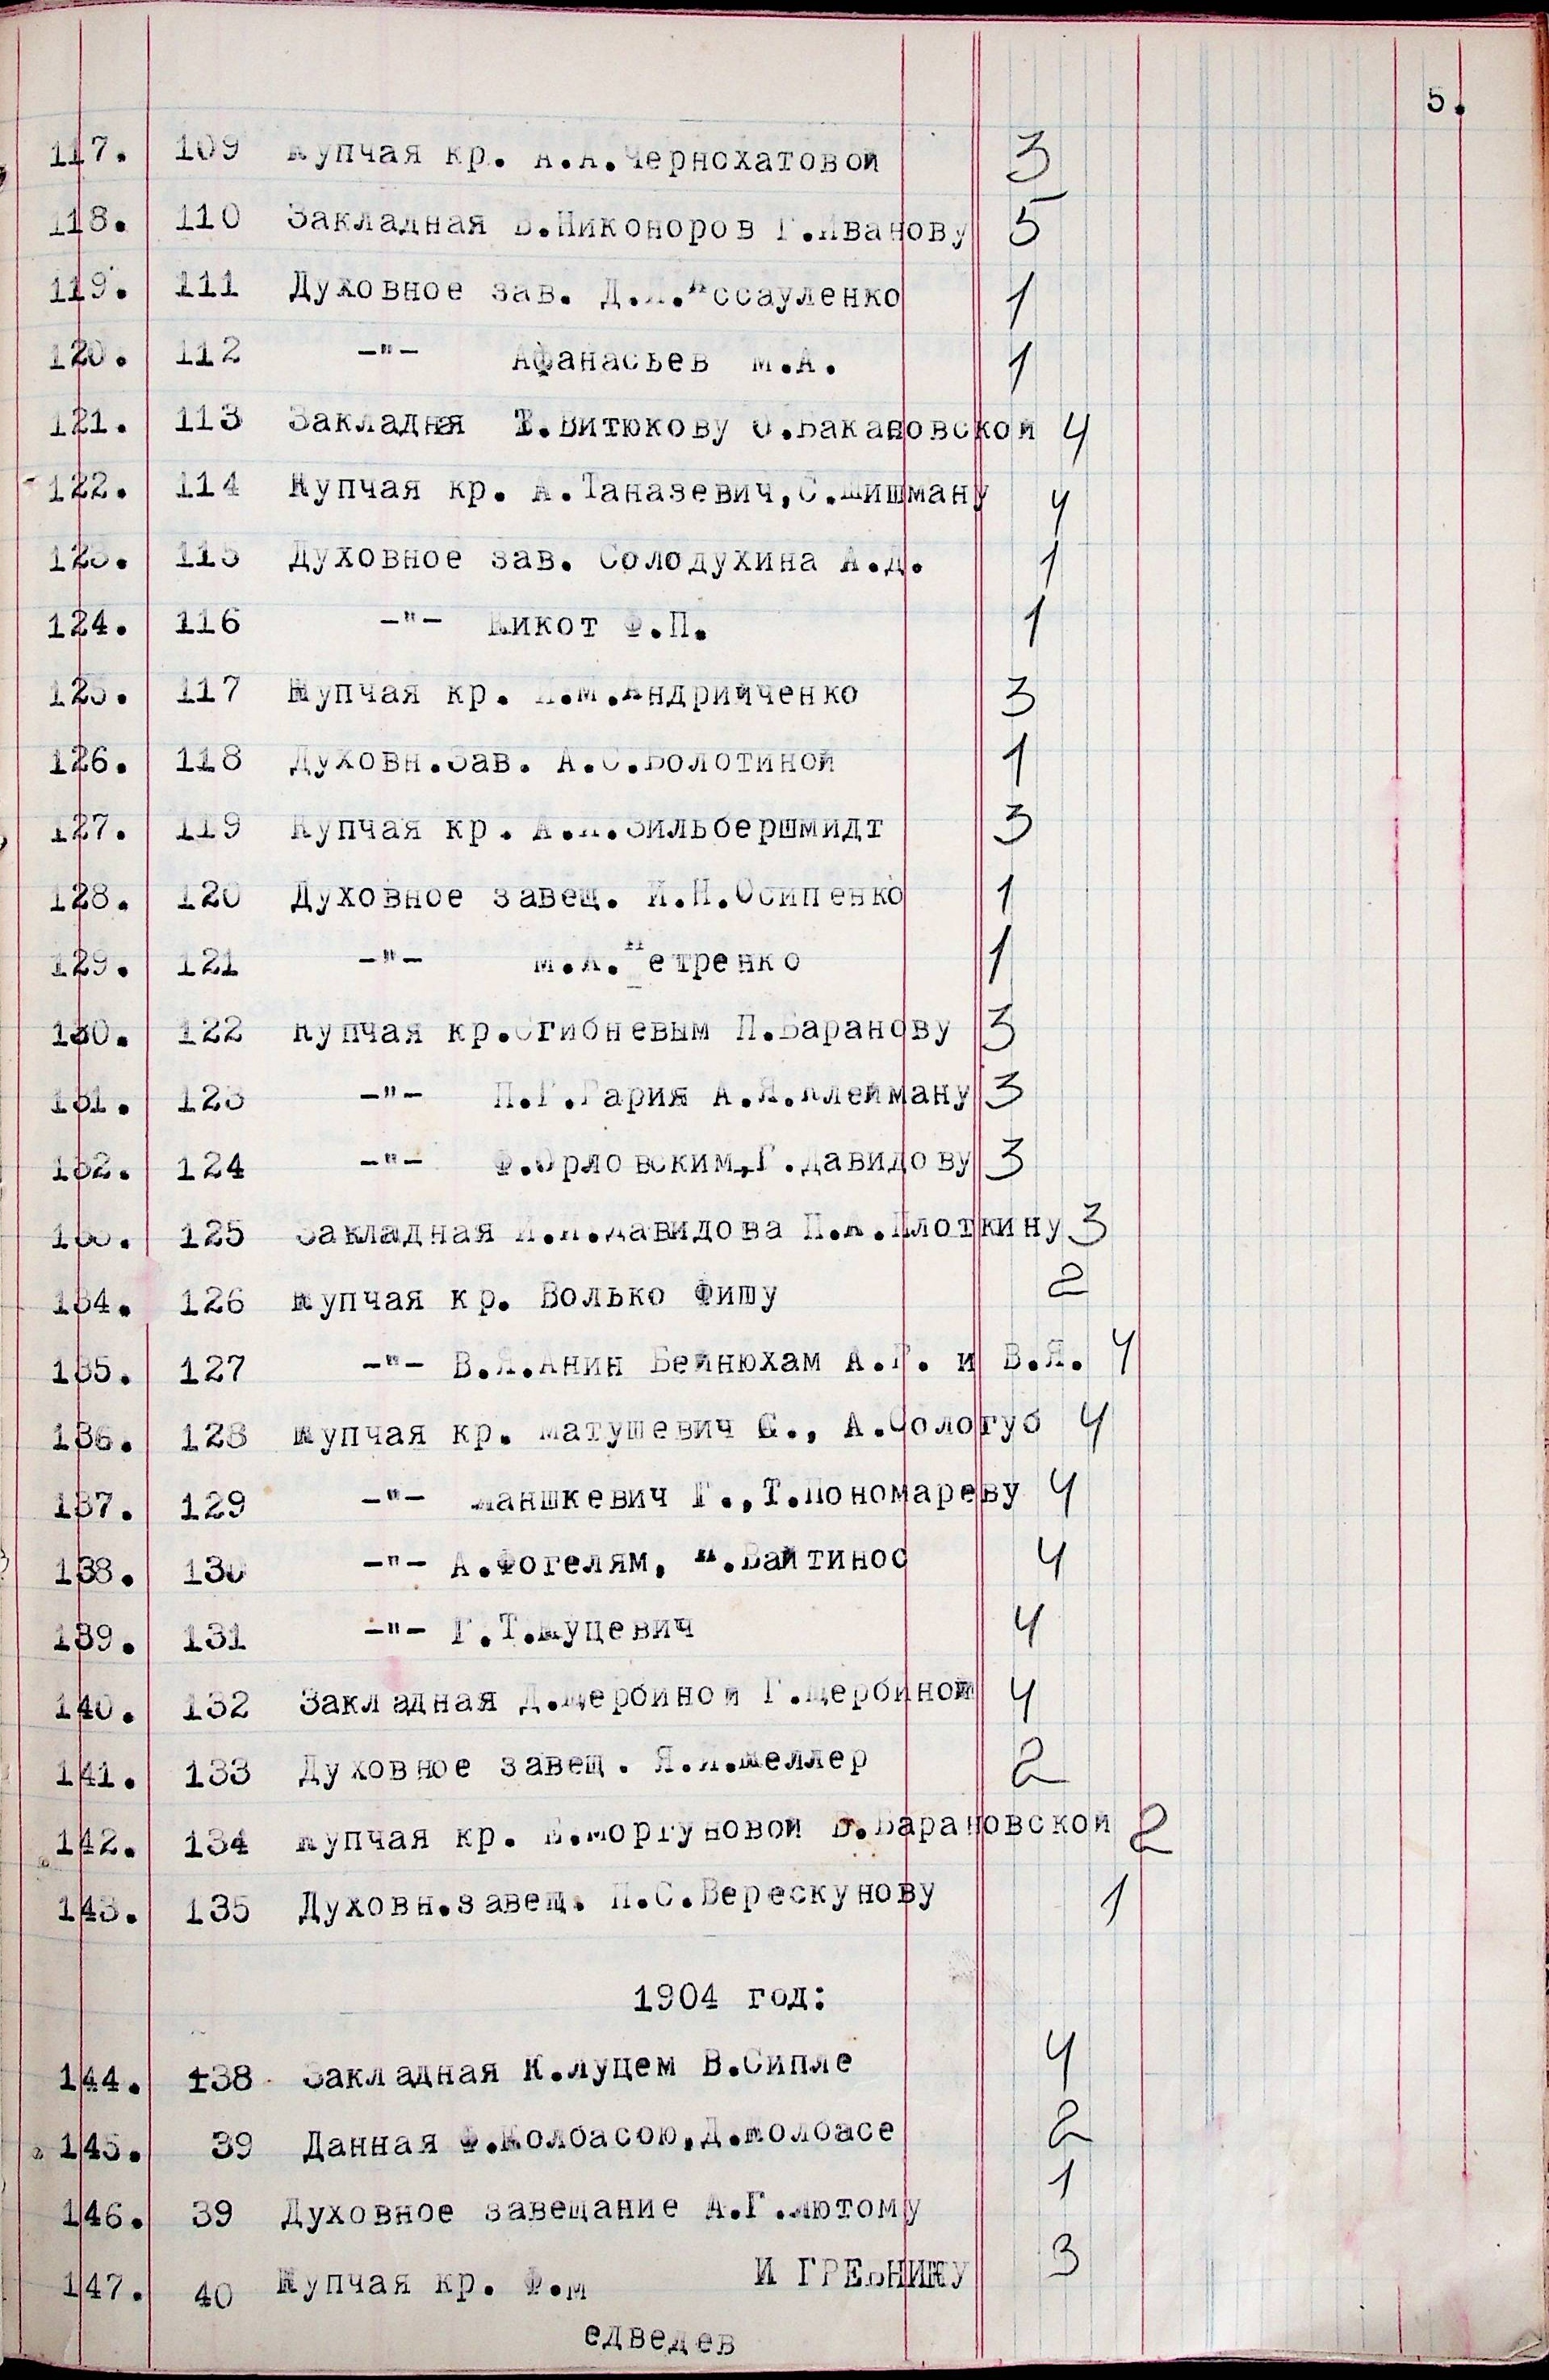 5.
117. 109 Купчая кр. А.А.Чернохатовой 3
118. 110 Закладная В.Никоноров Г.Иванову 5
119. 111 Духовное зав. Д. Ассауленко 1
120. 112 -"- Афанасьев М.А. 1
121. 113 Закладная Т.Витюкову О.Бакановской 4
122. 114 Купчая кр. А.Таназевич,С.Шишману 4
123. 115 Духовное зав. Солодухина А.Д. 1
124. 116 -"- Кикот Ф.П. 1
125. 117 Купчая кр. Андрийченко 3
126. 118 Духовн.Зав. А.С.Болотиной 1
127. 119 Купчая кр. Зильбершмидт 3
128. 120 Духовное завещ. И.Н.Осипенко 1
129. 121 -"- М.А.Петренко 1
130. 122 Купчая кр.Сгибневым П.Баранову 3
131. 123 -"- П.Г.Гария А.Я.Клейману 3
132. 124 -"- Ф.Орловским,Г.Давидову 3
133. 125 Закладная Давидова П.А.Плоткину 3
134. 126 Купчая кр. Волько Фишу 2
135. 127 -"- В.Я.Анин Бейнюхам А.Г. и В.Я. 4
136. 128 Купчая кр. Матушевич С., А.Сологуб 4
137. 129 -"- Г.,Т.Пономареву 4
138. 130 -"- А.Фогелям, Вайтинос 4
139. 131 -"- Г.Т.Куцевич 4
140. 132 Закладная Д.Щербиной Г.Щербиной 4
141. 133 Духовное завещ. Келлер 2
142. 134 Купчая кр. Моргуновой В.Барановской 2
143. 135 Духовн.завещ. П.С.Верескунову 1
1904 год:
144. 138 Закладная К.Луцем В.Сипле 4
145. 39 Данная Ф.Колбасою,Д.Колбасе 2
146. 39 Духовное завещание А.Г.Лютому 1
147. 40 Купчая кр. Ф.М И ГРЕБНИКУ 3
едведев